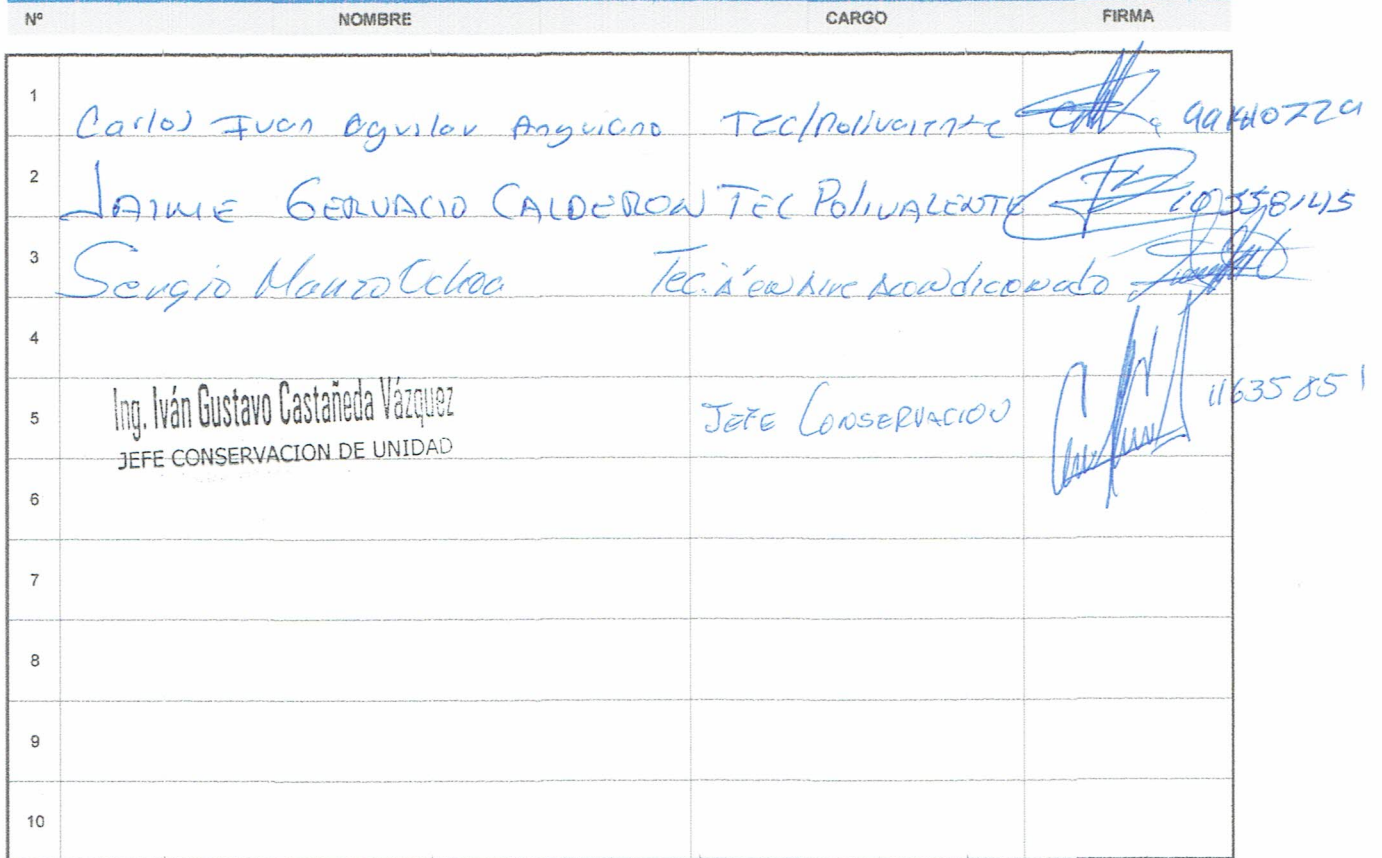 Nº NOMBRE CARGO FIRMA
1 Carlos Ivan Aguilar Anguiano TEC/Polivalente
2 JAIME GERVACIO CALDERON TEC POLIVALENTE
3 Sergio Manzo Ochoa Tec. en Aire Acondicionado
4
5 Ing. Iván Gustavo Castañeda Vázquez JEFE CONSERVACION 11635851
JEFE CONSERVACION DE UNIDAD
6
7
8
9
10